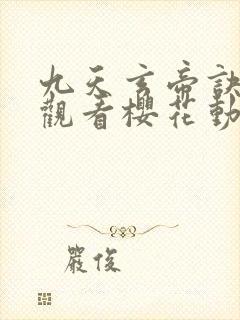 九天玄帝訣
觀看櫻花動
嚴俊